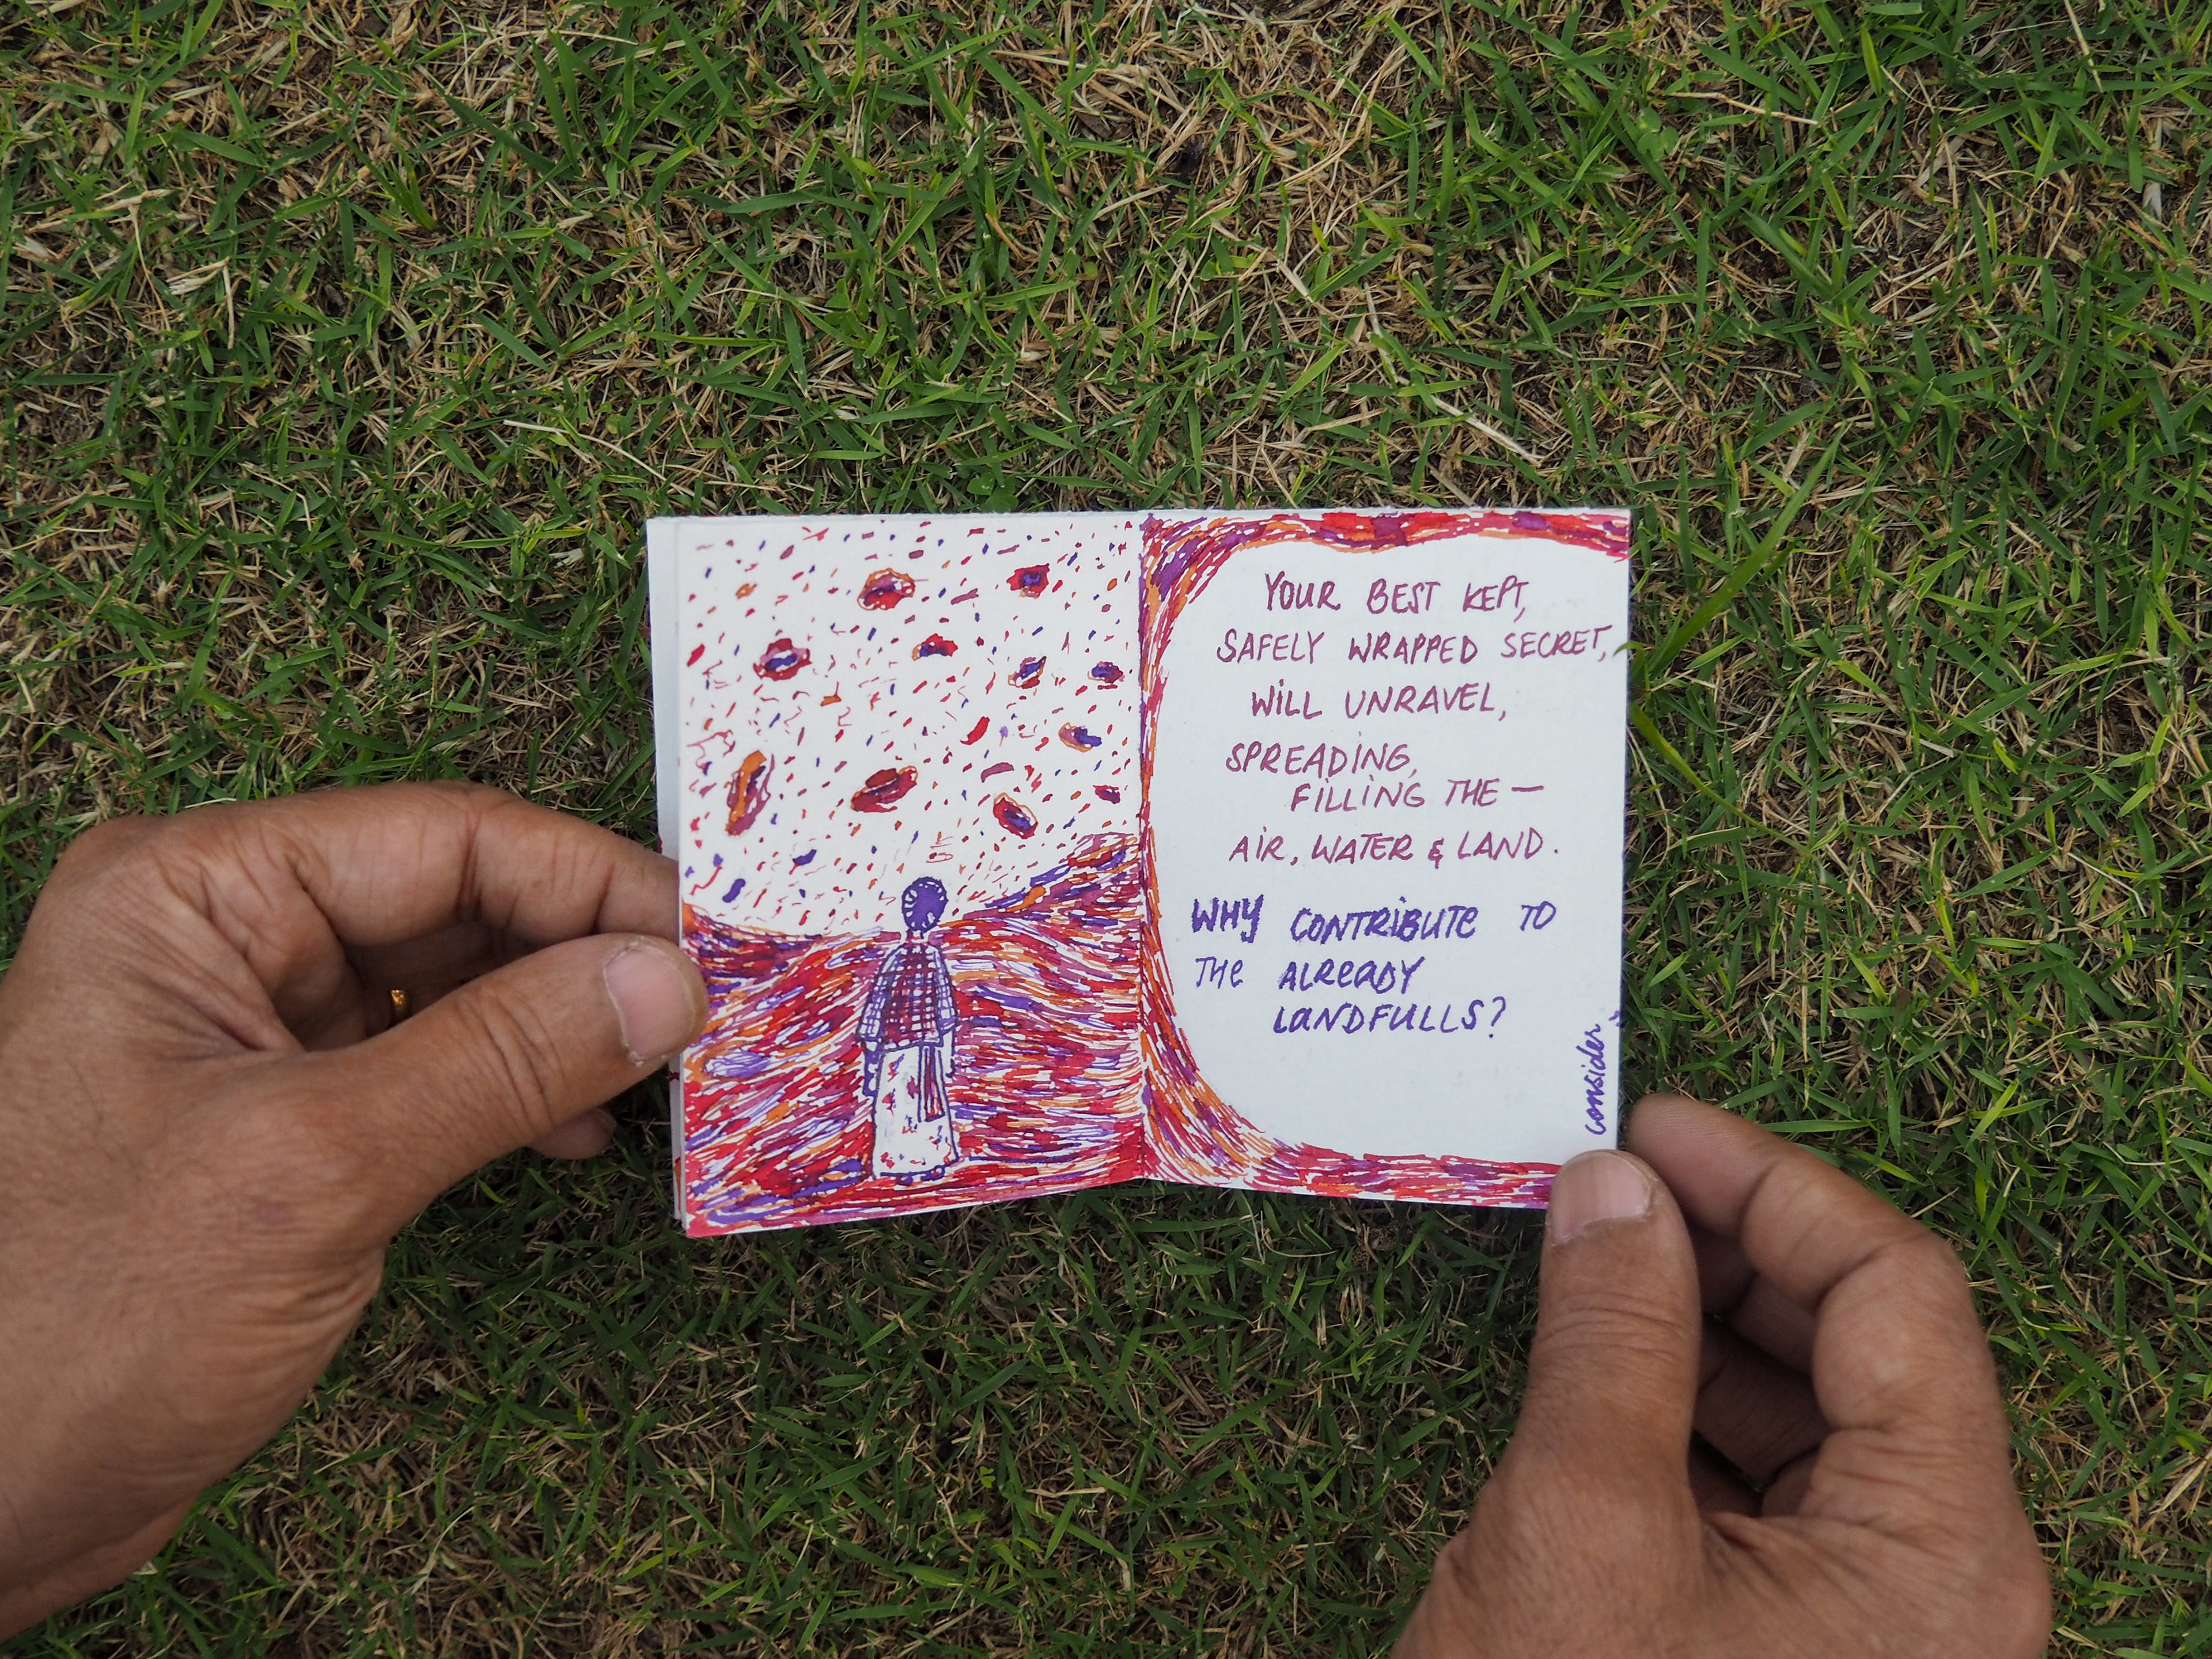 YOUR BEST KEPT,
SAFELY WRAPPED SECRET,
WILL UNRAVEL,
SPREADING,
FILLING THE —
AIR, WATER & LAND.
WHY CONTRIBUTE TO
THE ALREADY
LANDFULLS?
consider